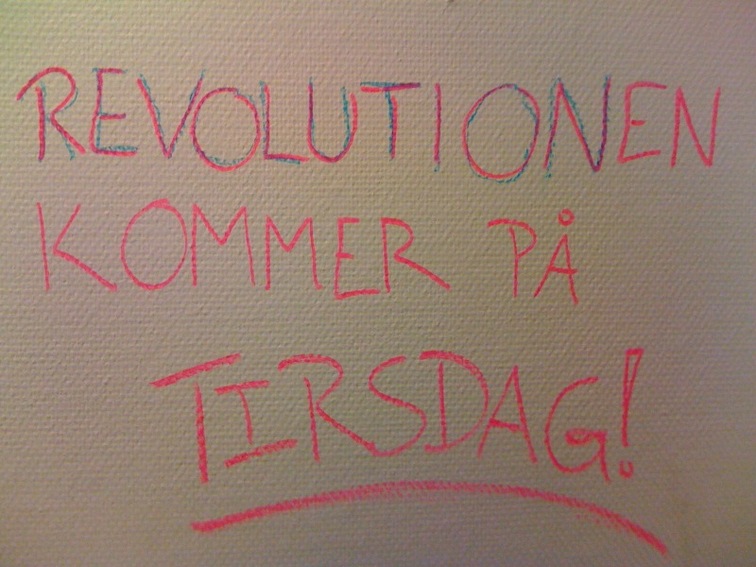 REVOLUTIONEN
KOMMER PÅ
TIRSDAG!